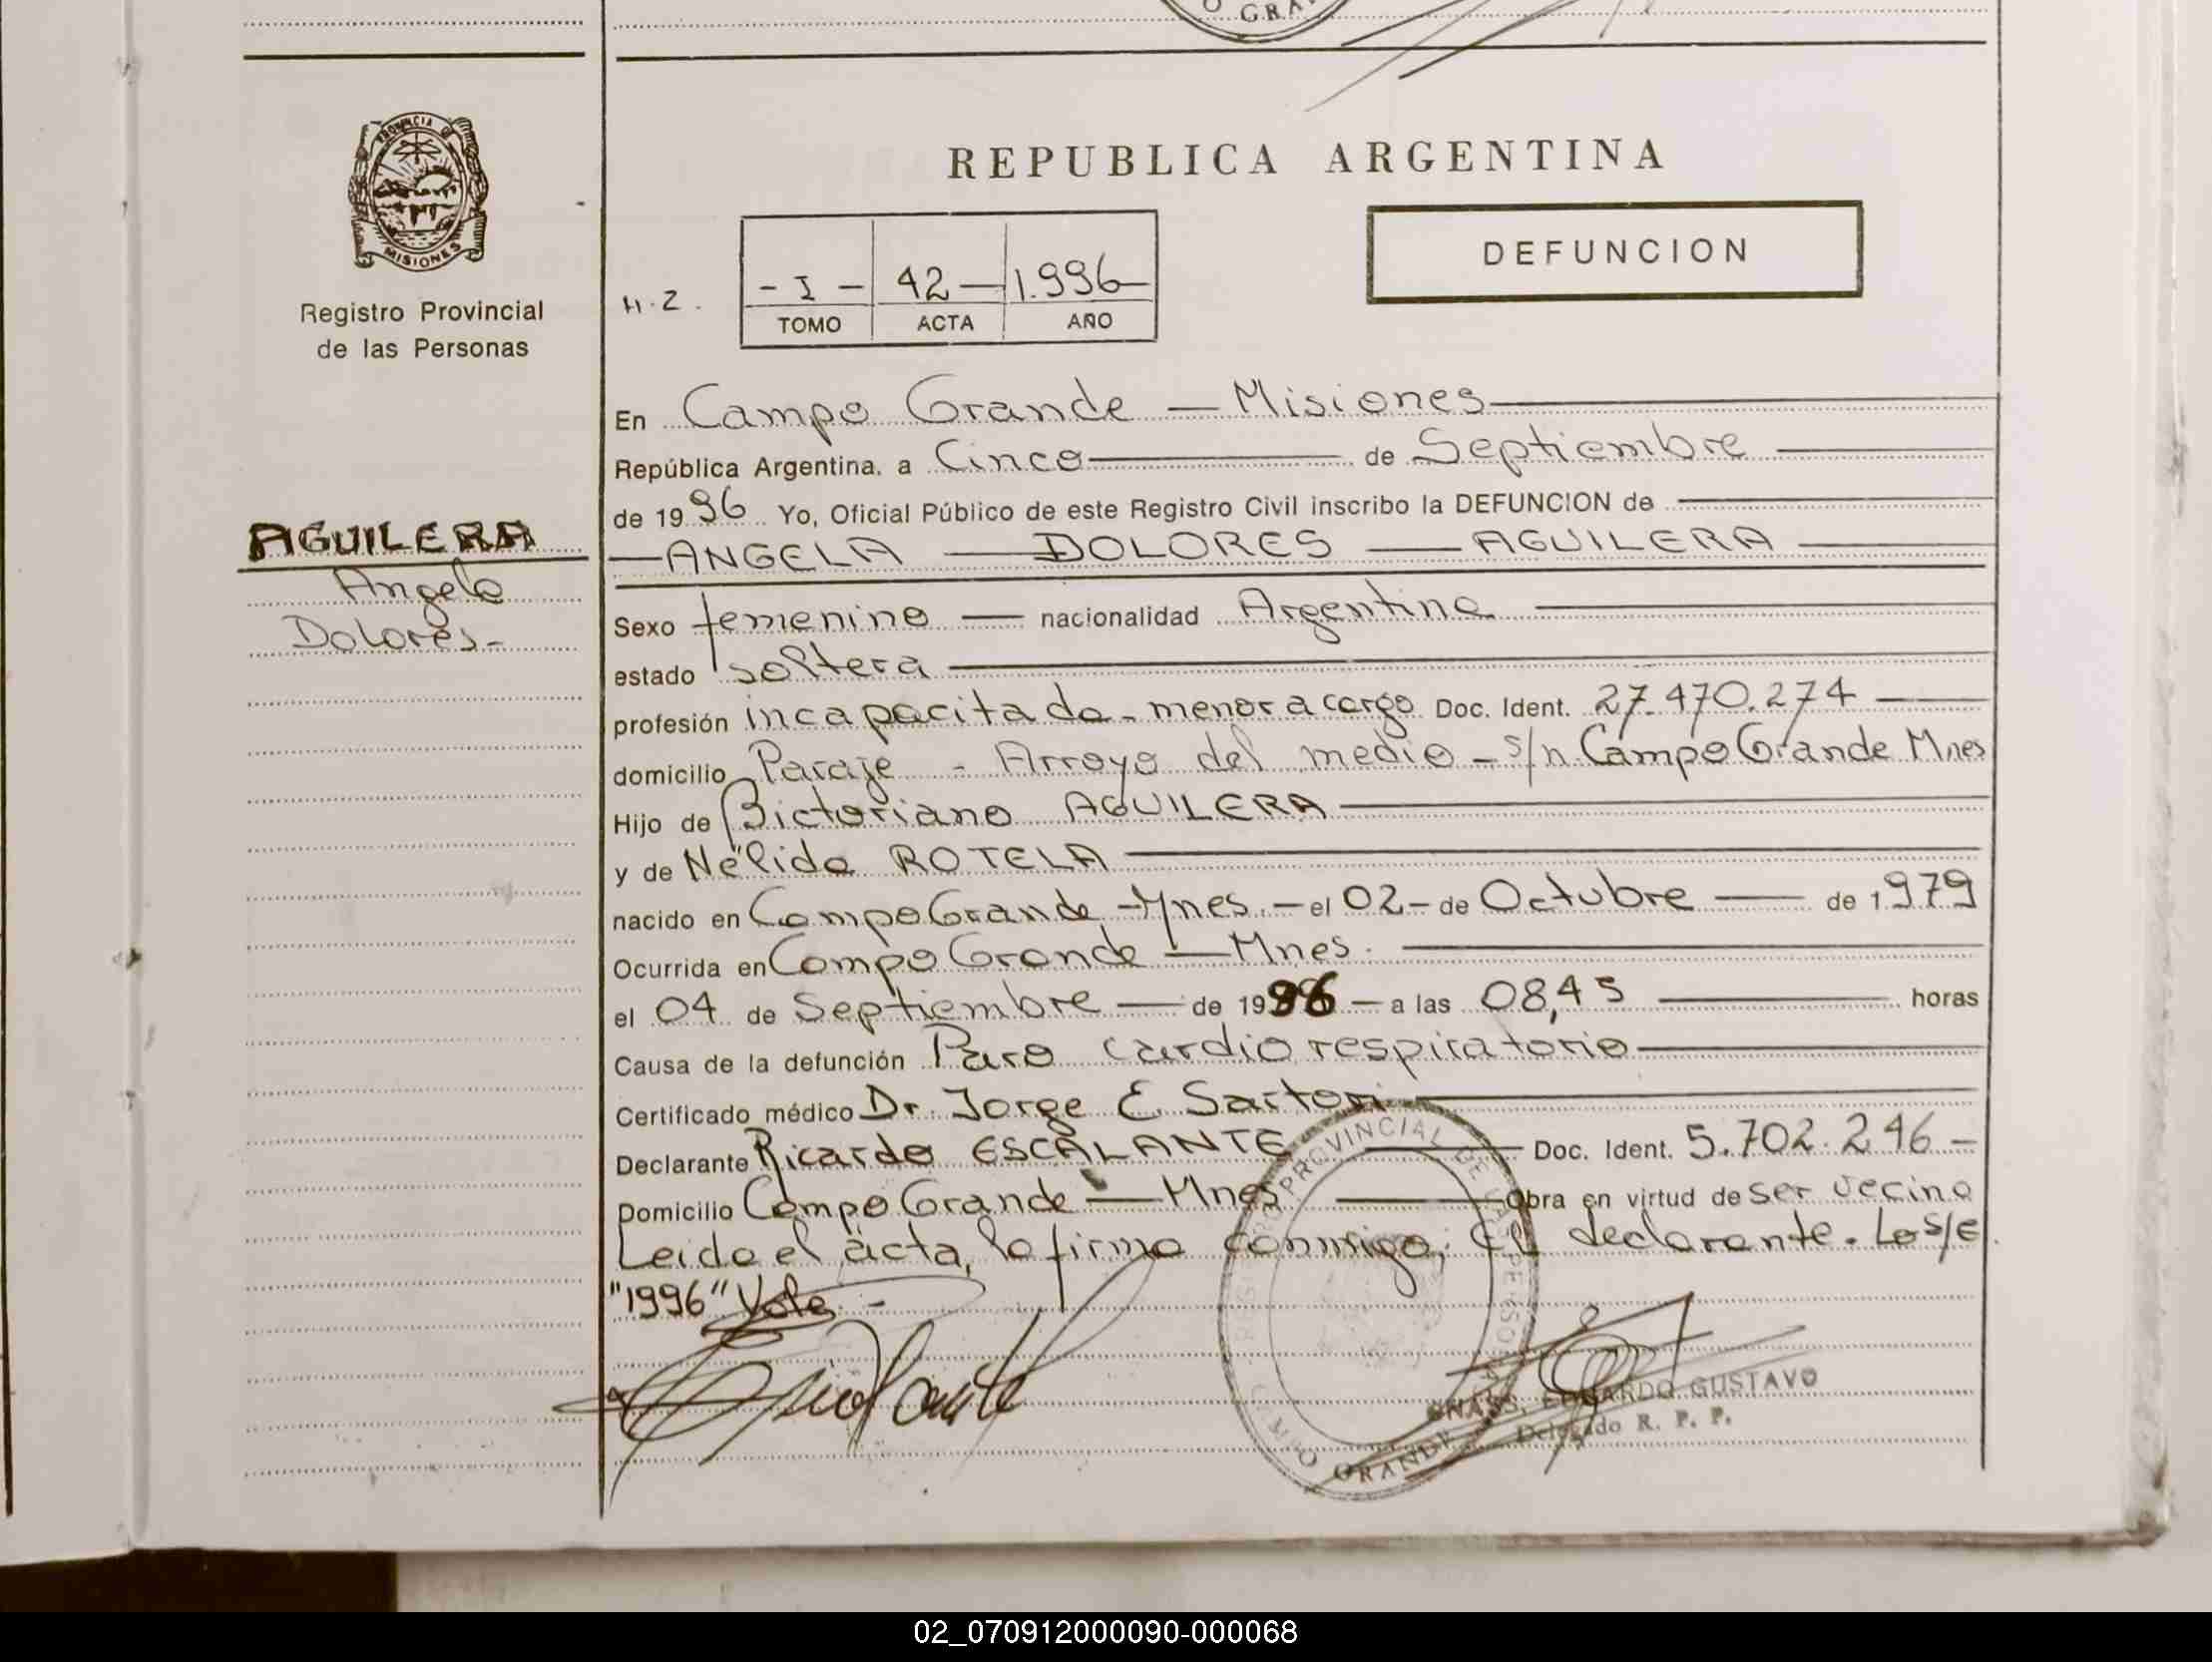 GRA
PROVINCIA DE
MISIONES
Registro Provincial
de las Personas
AGUILERA
Angela
Dolores-
REPUBLICA ARGENTINA
DEFUNCION
H.Z.
- I - 42 - 1.996 -
TOMO ACTA AÑO
En Campo Grande - Misiones
República Argentina, a Cinco de Septiembre
de 1996 Yo, Oficial Público de este Registro Civil inscribo la DEFUNCION de
ANGELA DOLORES AGUILERA
Sexo femenino nacionalidad Argentina
estado soltera
profesión incapacitada - menor a cargo Doc. Ident. 27.470.274
domicilio Paraje - Arroyo del medio - s/n Campo Grande Mnes
Hijo de Bictoriano AGUILERA
y de Nélida ROTELA
nacido en Campo Grande - Mnes. - el 02 - de Octubre de 1979
Ocurrida en Campo Grande - Mnes.
el 04 de Septiembre de 1996 - a las 08,45 horas
Causa de la defunción Paro cardio respiratorio
Certificado médico Dr. Jorge E Sartori
Declarante Ricardo ESCALANTE Doc. Ident. 5.702.246 -
Domicilio Campo Grande - Mnes Obra en virtud de ser vecino
Leido el acta, la firma conmigo, El declarante. Lo s/e
"1996" Vale. -
REGISTRO PROVINCIAL DE LAS PERSONAS
CAMPO GRANDE
EDUARDO GUSTAVO
Delegado R. P. P.
02_070912000090-000068